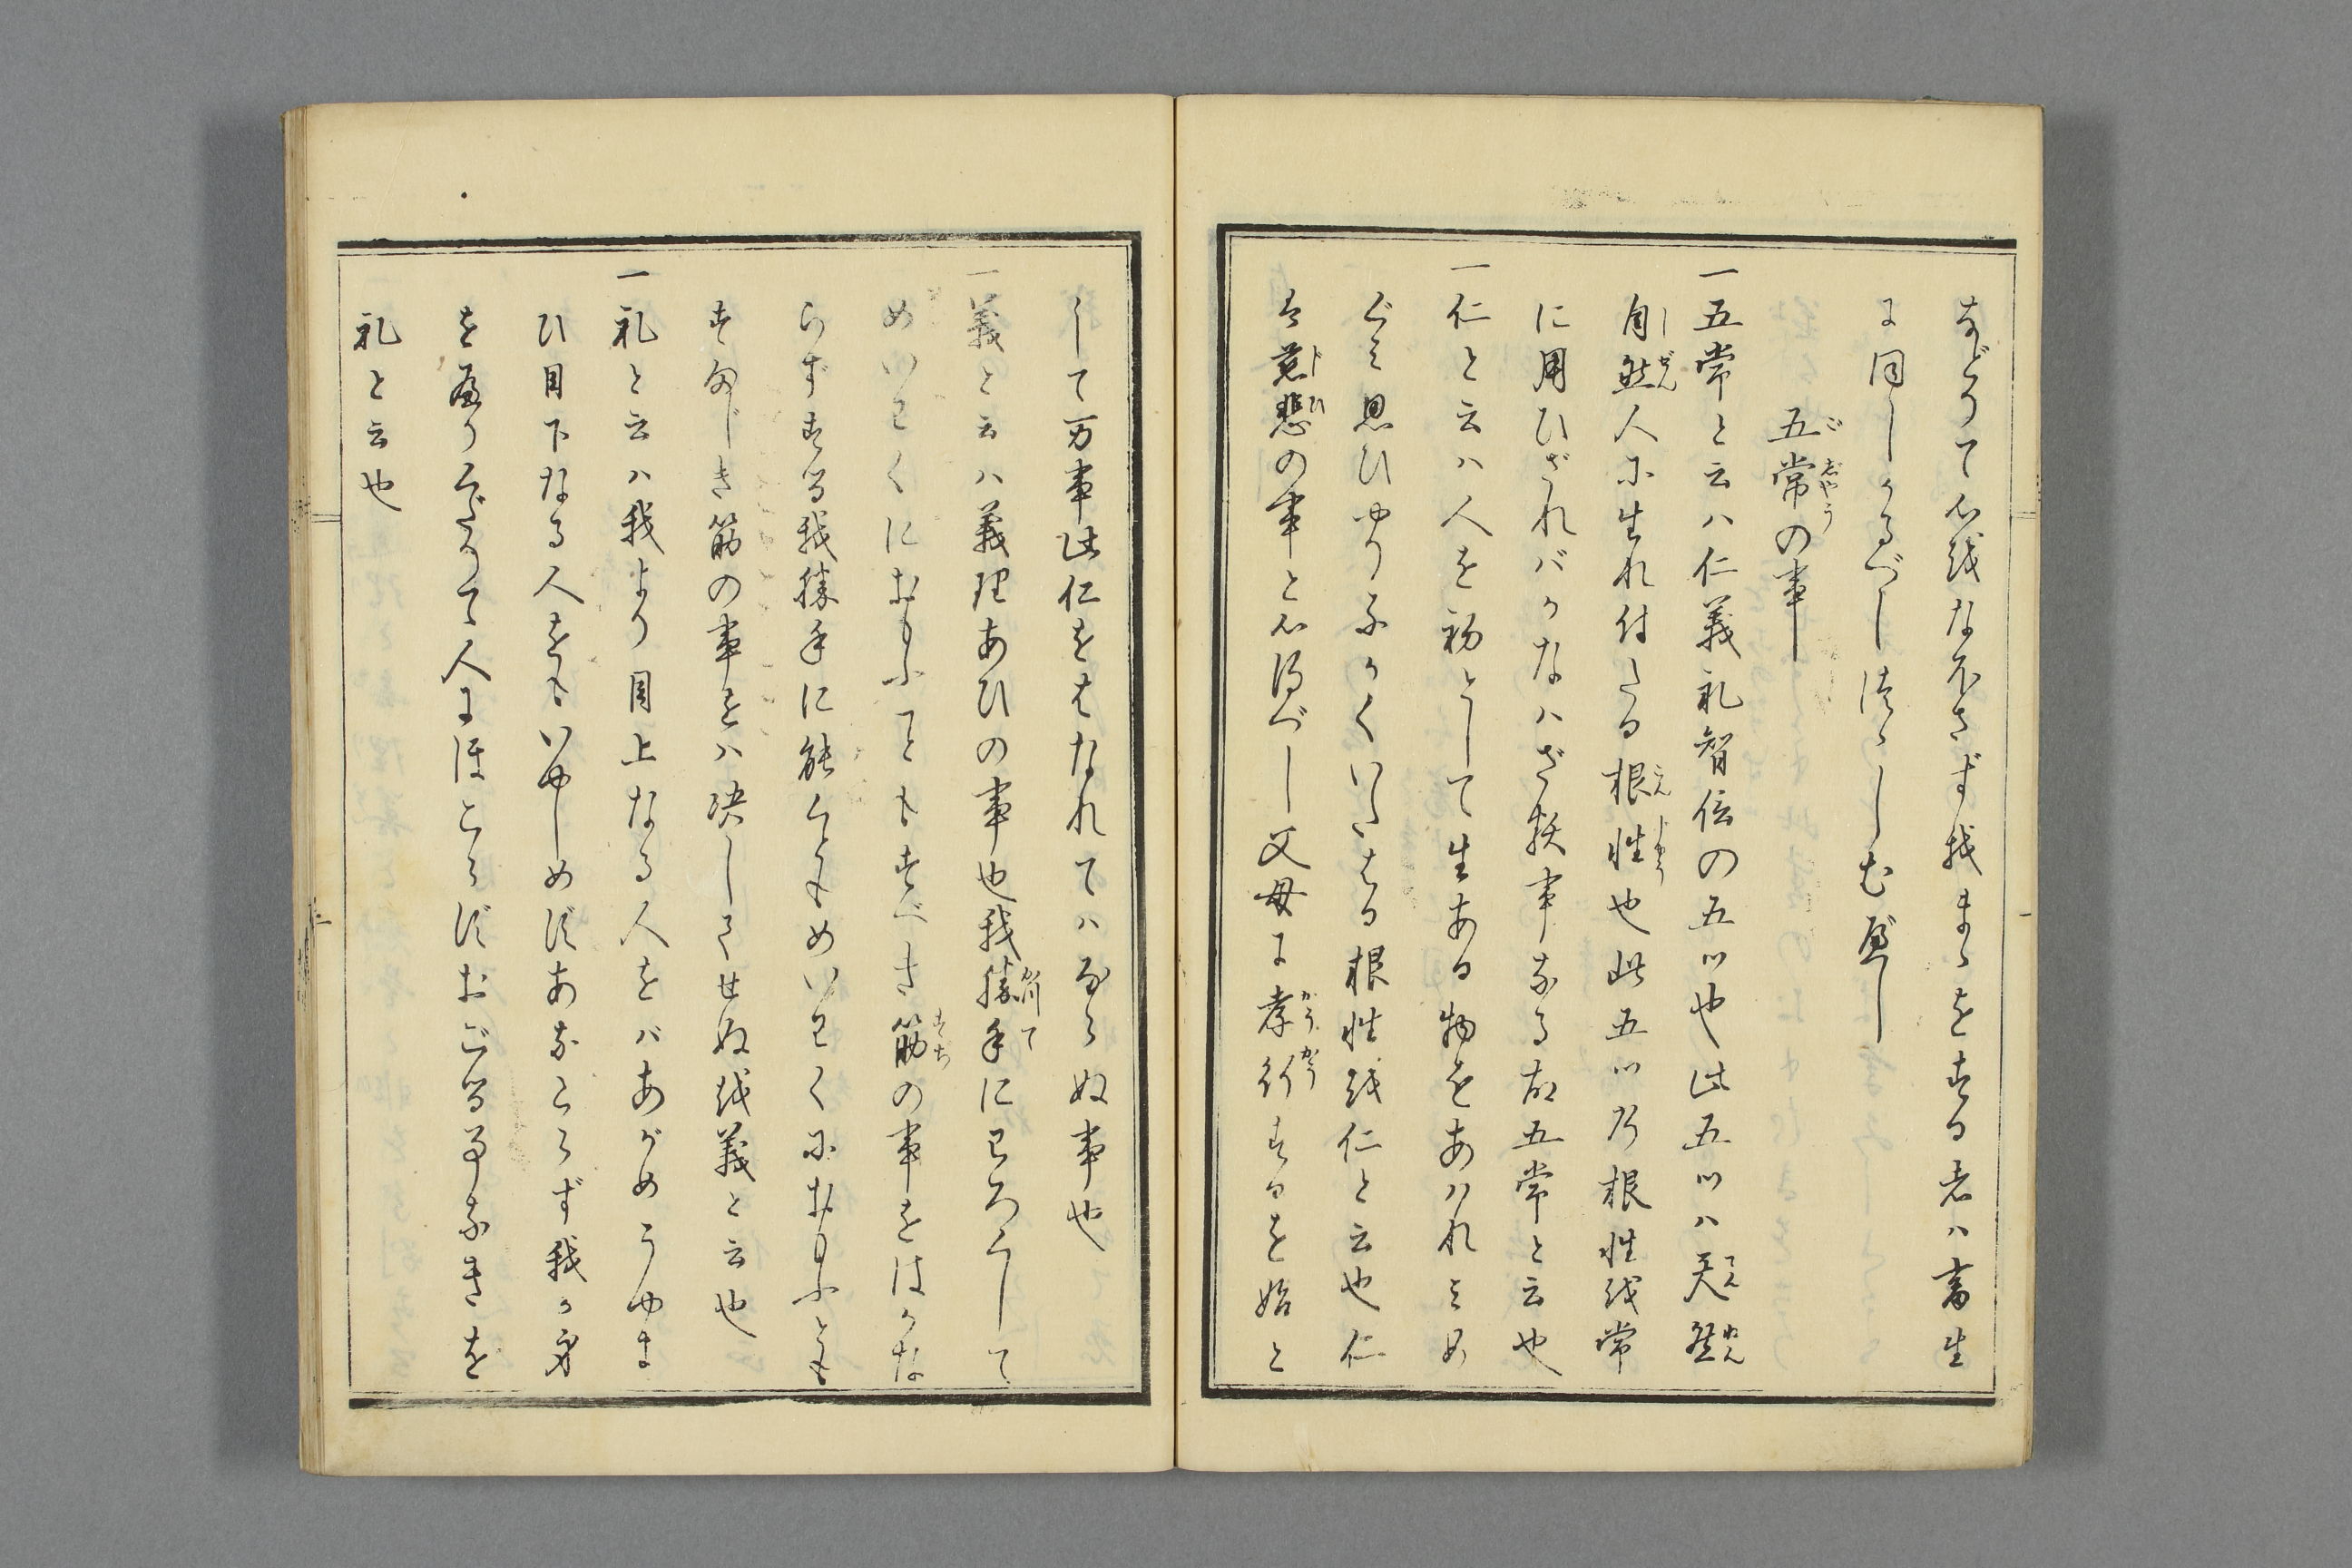 あどりて心越なをさず我まゝを春る者ハ畜生
に同しかるべし津ゝしむ遍し
五常の事
一五常と云ハ仁義礼智信の五ツ也此五ツハ天然
自然人に生れ付たる根性也此五ツ乃根性越常
に用ひざればかなハざ類事なる故五常と云也
一仁と云ハ人を初として生ある物をあハれミめ
ぐミ思ひやりふかくいたはる根性越仁と云也仁
は慈悲の事と心得べし父母に孝行するを始と
して万事此仁をはなれてハならぬ事也
一義と云ハ義理あひの事也我勝手にわろくして
めいわくにおもふことも春べき筋の事をはかな
らず春る我勝手に能くともめいわくにおもふとも
春まじき筋の事をハ决してせぬ越義と云也
一礼と云ハ我より目上なる人をバあがめうやま
ひ目下なる人をもいやしめずあなどらず我が身
を遍りくだりて人にほこらずおごる事なきを
礼と云也